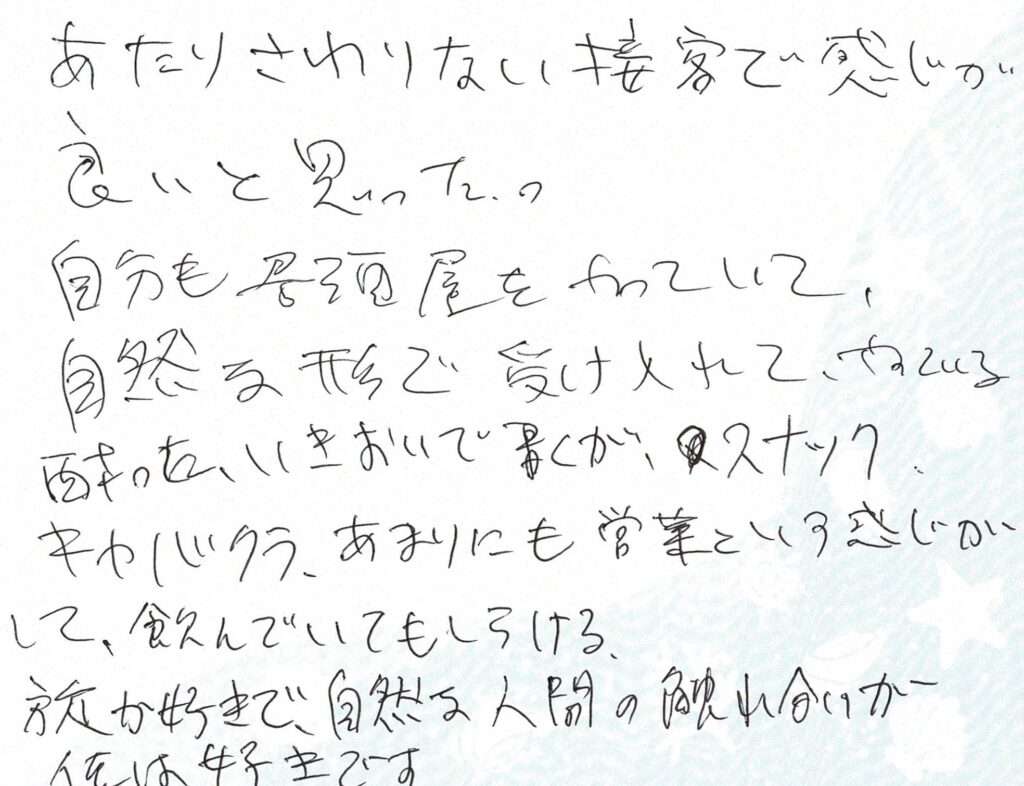 あたりさわりない接客で感じが
良いと思った。
自分も居酒屋をやっていて、
自然な形で受け入れて、やっている
酔った、いきおいで書くが、スナック、
キャバクラ、あまりにも営業という感じが
して、飲んでいてもしらける、
旅が好きで、自然な人間の触れ合いが
僕は好きです